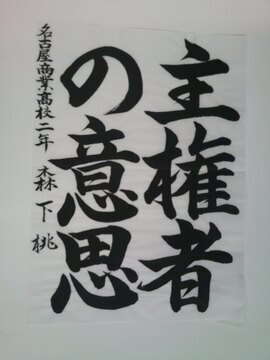 主権者
の意思
名古屋商業高校二年 森下桃